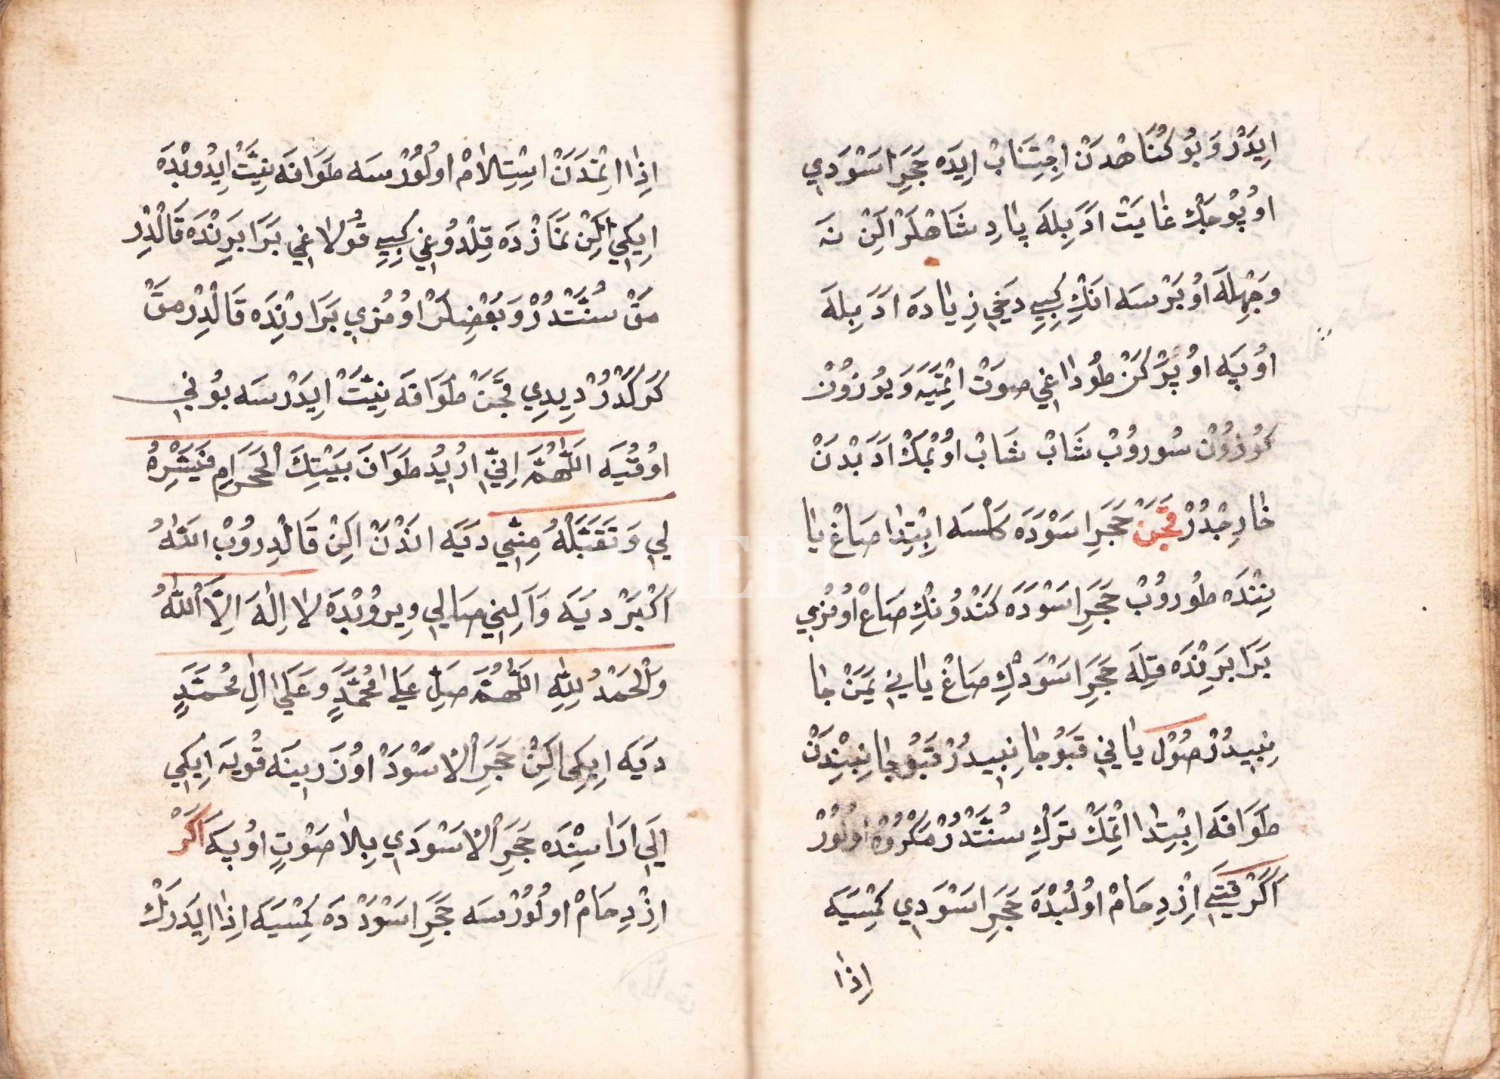 ايدر و بو كناهدن اجتناب ايده حجر اسودي
اوپوجك غايت ادبله پادشاهلر الن نه
وجهله اوپرسه انك كبي دخي زياده ادبله
اوپه اوپركن طوداغي صوت اتميه و يوزون
كوزون سوروب شاپ شاپ اوپمك ادبدن
خارجدر قچن حجر اسوده كلسه ابتدا صاغ يا
ننده طوروب حجر اسوده كندونك صاغ اومزي
برابرنده قله حجر اسودك صاغ ياني يمن جا
نبيدر صول ياني قبو جانبيدر قبو جانبندن
طوافه ابتدا اتمك ترك سنتدر مكروه اولور
اكر قتي ازدحام اولبده حجر اسودي كمسيه
اذا
اذا اتمدن استلام اولورسه طوافه نيت ايدوبده
ايكي الن نمازده قلدوغي كبي قولاغي برابرنده قالدر
مق سنتدر و بعضلر اومزي برارنده قالدرمق
كركدر ديدي قچن طوافه نيت ايدرسه بوني
اوقيه اللهم اني اريد طواف بيتك الحرام فيسره
لي و تقبله مني ديه اندن الن قالدروب الله
اكبر ديه و الني صالي ويروبده لا اله الا الله
والحمد لله اللهم صل على محمد و على ال محمد
ديه ايكي الن حجر الاسود اوزرينه قويه ايكي
الي اراسنده حجر الاسودي بلا صوت اوپه اكر
ازدحام اولورسه حجر اسودده كمسيه اذا ايدرك